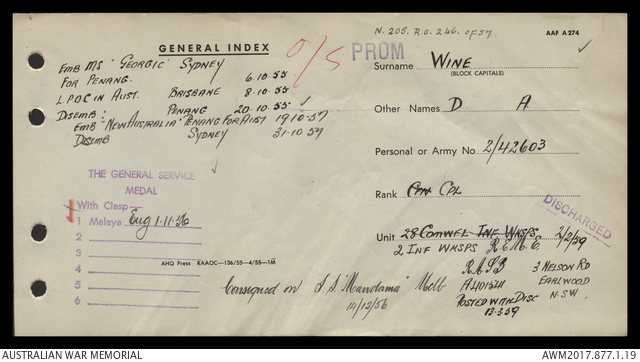 N. 205. R.O. 246. of 57.
AAF A274
GENERAL INDEX
O/S
PROM
EMB MS "GEORGIC" SYDNEY
FOR PENANG. 6.10.55
L.P.O.C IN AUST. BRISBANE 8.10.55
DISEMB: PENANG 20.10.55
EMB "NEW AUSTRALIA" PENANG FOR AUST 19.10.57
DISEMB SYDNEY 31.10.57
THE GENERAL SERVICE
MEDAL
With Clasp—
1 Malaya Eng 1.11.56
2
3
4
5
6
AHQ Press RAAOC—136/55—4/55—1M
Consigned on S.S. "Mandama" Melb
14/12/56
Surname WINE
(BLOCK CAPITALS)
Other Names D A
Personal or Army No 2/42603
Rank CFN CPL
DISCHARGED
Unit 28 COMWEL INF WKSPS 2/2/59
2 INF WKSPS R.E.M.E
3 NELSON RD
EARLWOOD
N.S.W.
POSTED WITH DISC
13.3.59